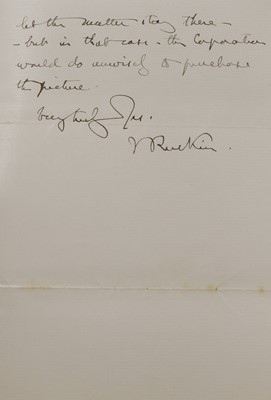 let the matter stay there –
– but in that case – the Corporation
would do unwisely to purchase
the picture.
Very truly Yrs.
J Ruskin.